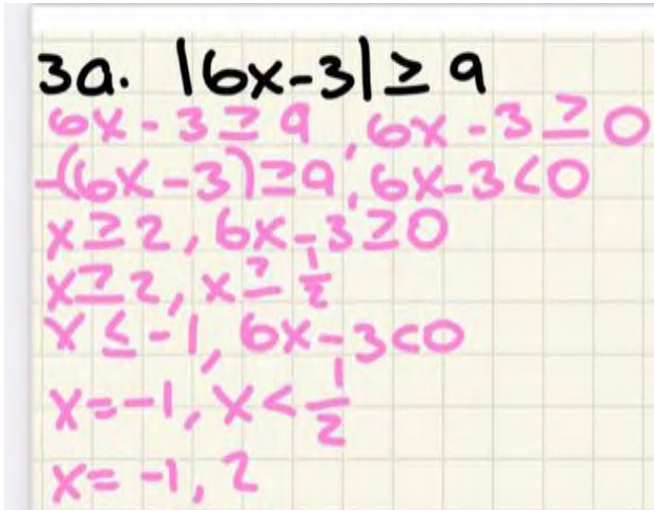 3a. |6x-3| ≥ 9
6x-3 ≥ 9, 6x-3 ≥ 0
-(6x-3) ≥ 9, 6x-3 < 0
x ≥ 2, 6x-3 ≥ 0
x ≥ 2, x ≥ 1/2
x ≤ -1, 6x-3 < 0
x = -1, x < 1/2
x = -1, 2